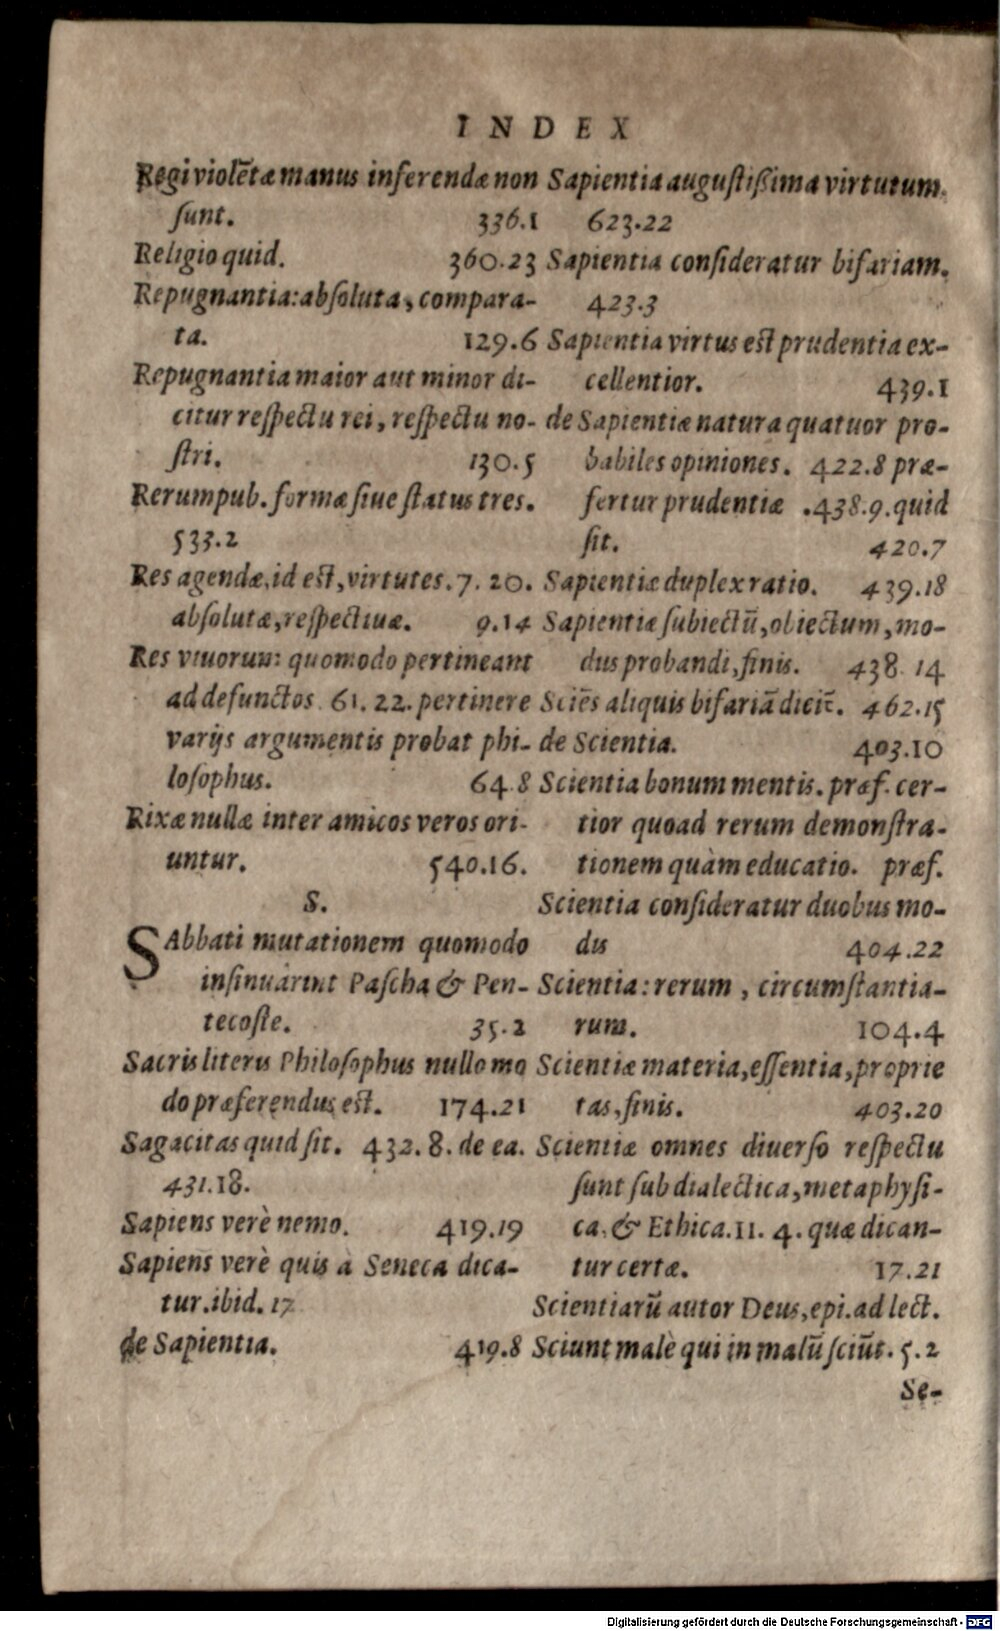 INDEX
Regi violēta manus inferendæ non
ſunt. 336.1
Religio quid. 360.23
Repugnantia: abſoluta, compara-
ta. 129.6
Repugnantia maior aut minor di-
citur reſpectu rei, reſpectu no-
ſtri. 130.5
Rerumpub. formæ ſiue ſtatus tres.
533.2
Res agendæ, id eſt, virtutes. 7. 20.
abſolutæ, reſpectiuæ. 9.14
Res viuorum: quomodo pertineant
ad defunctos. 61. 22. pertinere
varijs argumentis probat phi-
loſophus. 64.8
Rixæ nullæ inter amicos veros ori-
untur. 540.16.
S.
SAbbati mutationem quomodo
inſinuarint Paſcha & Pen-
tecoſte. 35.2
Sacris literis Philoſophus nullo mo
do præferendus eſt. 174.21
Sagacitas quid ſit. 432. 8. de ea.
431.18.
Sapiens verè nemo. 419.19
Sapiens verè quis à Seneca dica-
tur. ibid. 17
de Sapientia. 419.8
Sapientia auguſtiſſima virtutum.
623.22
Sapientia conſideratur bifariam.
423.3
Sapientia virtus eſt prudentia ex-
cellentior. 439.1
de Sapientiæ natura quatuor pro-
babiles opiniones. 422.8 præ-
fertur prudentiæ .438.9. quid
ſit. 420.7
Sapientiæ duplex ratio. 439.18
Sapientiæ ſubiectū, obiectum, mo-
dus probandi, finis. 438.14
Sciēs aliquis bifariā dicit̄. 462.15
de Scientia. 403.10
Scientia bonum mentis. præf. cer-
tior quoad rerum demonſtra-
tionem quàm educatio. præf.
Scientia conſideratur duobus mo-
dis 404.22
Scientia: rerum, circumſtantia-
rum. 104.4
Scientiæ materia, eſſentia, proprie
tas, finis. 403.20
Scientiæ omnes diuerſo reſpectu
ſunt ſub dialectica, metaphyſi-
ca, & Ethica. 11. 4. quæ dican-
tur certæ. 17.21
Scientiarū autor Deus, epi. ad lect.
Sciunt malè qui in malū ſciūt. 5.2
Se-
Digitalisierung gefördert durch die Deutsche Forschungsgemeinschaft - DFG